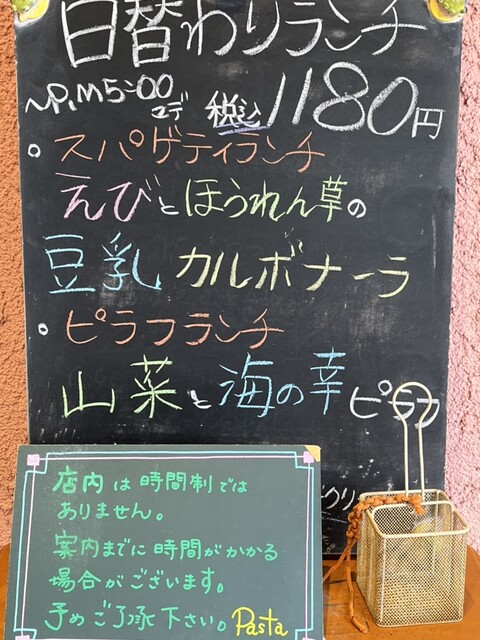 日替わりランチ
~P.M5:00マデ 税込1180円
○スパゲティランチ
えびとほうれん草の
豆乳カルボナーラ
○ピラフランチ
山菜と海の幸ピラフ
クリ
店内は時間制では
ありません。
案内までに時間がかかる
場合がございます。
予めご了承下さい。 Pasta